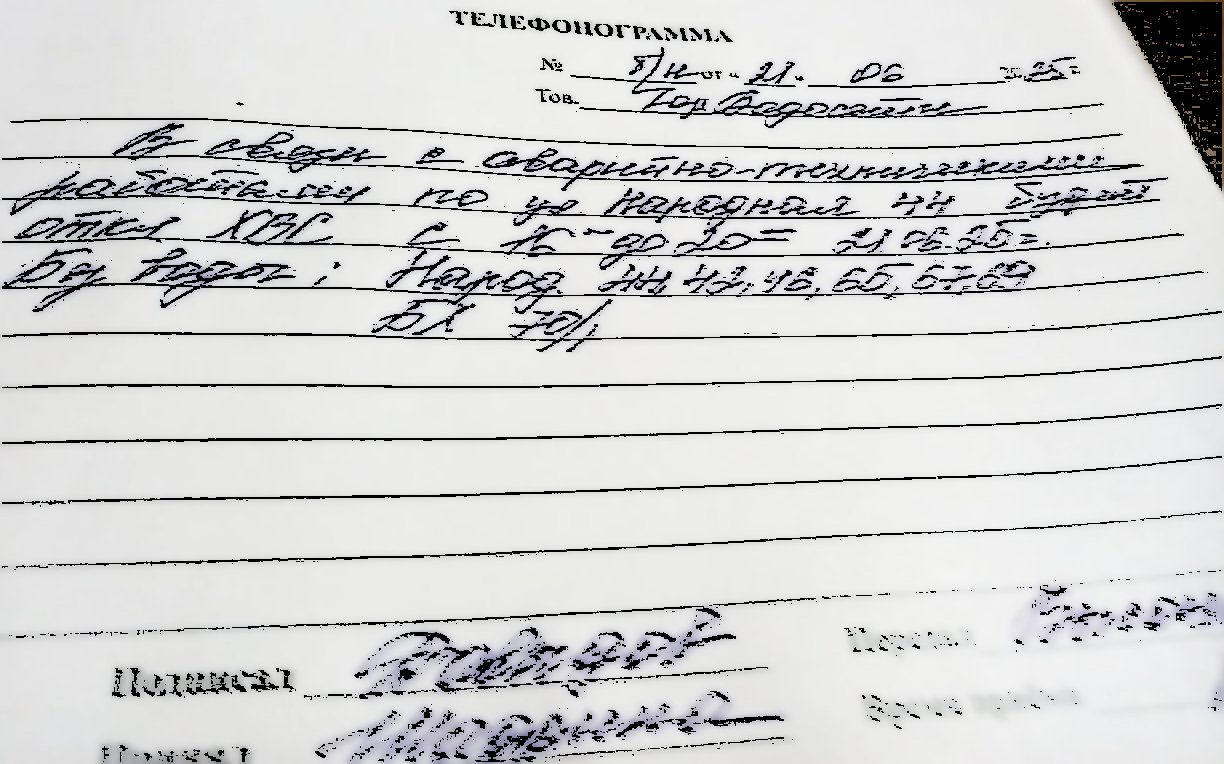 ТЕЛЕФОНОГРАММА
№ б/н от "21" 06 25г
Тов. Гор Водосети
В связи с аварийно-техническими
работами по ул Народная 44 будет
откл ХВС с 16 до 20 21.06.25г.
Без воды: Народ 44, 42, 46, 65, 67, 69
БХ 70/1
Подписал
Передал
Время приёма
Принял